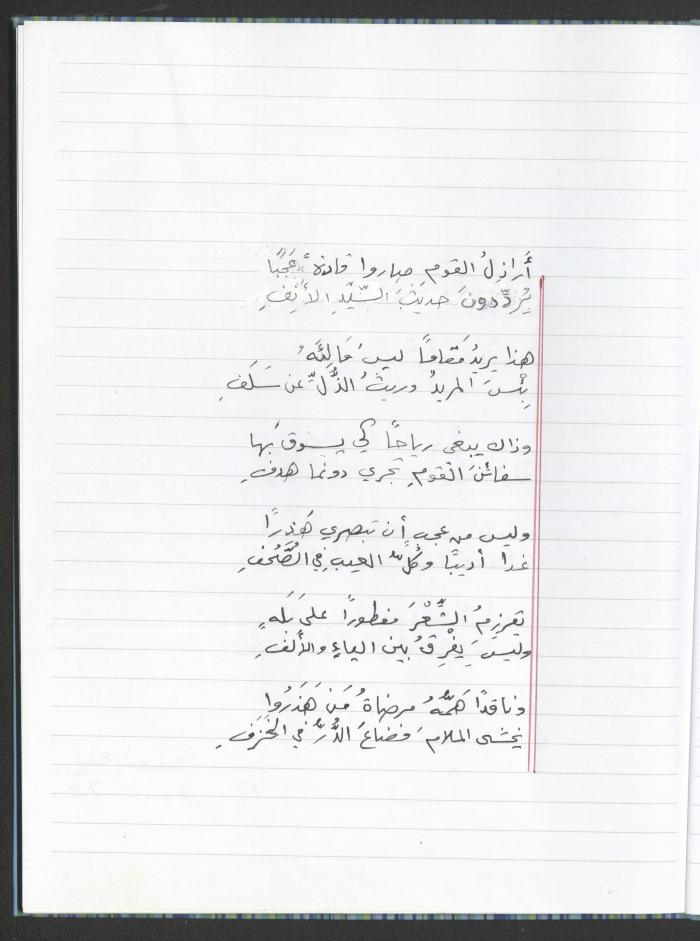 أَراذِلُ القوم صاروا قادةً عَجَبًا
يُرَدِّدونَ حديثَ السَّيِّدِ الأَنِفِ
هذا يريدُ مَقامًا ليسَ مَالِئَهُ
بِئْسَ المريدُ وريثُ الذُّلِّ عن سَلَفِ
وذاك يبغي رياحًا كي يسوقَ بها
سفائنَ القومِ تجري دونما هدفِ
وليس من عجبٍ أن تبصري هَذِرًا
غدا أديبًا وكُلُّ العيب في الصُّحُفِ
يقرزمُ الشِّعْرَ مفطورًا على بَلَهٍ
وليسَ يَفْرِقُ بين الياءِ والأَلِفِ
وناقدًا هَمُّهُ مرضاةُ مَنْ هَذَرُوا
يخشى الملامَ فضاعَ الدُّرُّ في الخَزَفِ